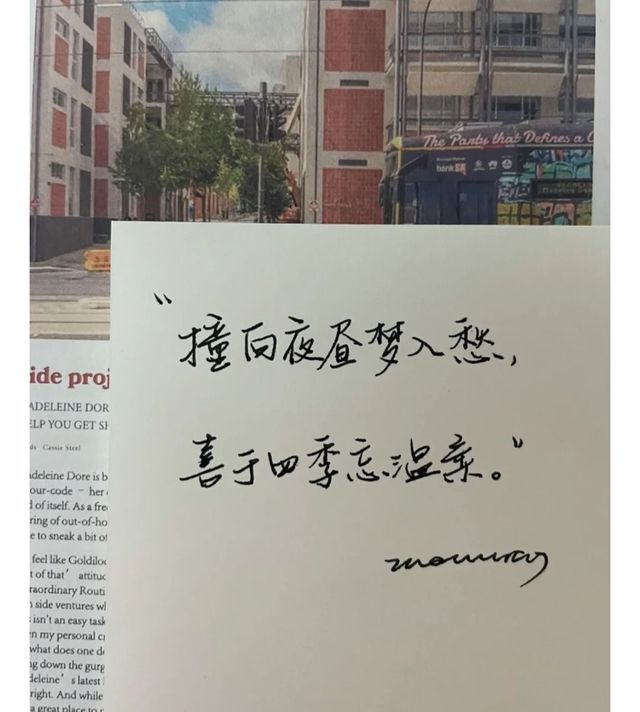 The Party that Defines a
bankSA
"撞向夜昼梦入愁,
喜于四季忘温柔。"
ide proj
ADELEINE DOR
ELP YOU GET SH
ds Cassie Steel
deleine Dore is b
our-code – her
d of itself. As a free
ring of out-of-ho
e to sneak a bit of
feel like Goldiloc
t of that' attituc
raordinary Routi
n side ventures wh
isn't an easy task
n my personal cr
what does one do
ng down the gurg
deleine's latest
right. And while
a great place to